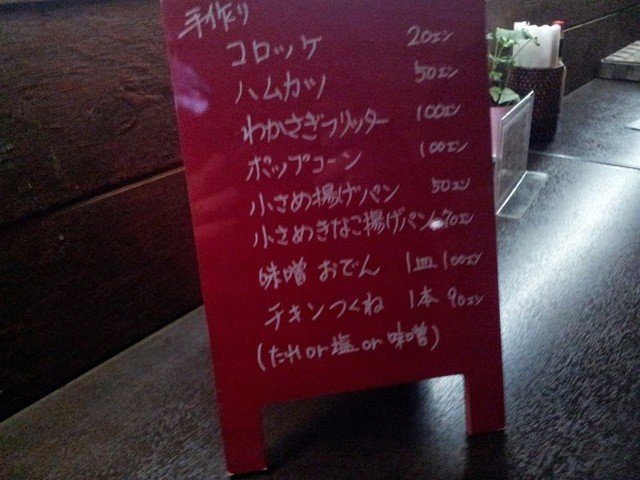 手作り
コロッケ 20エン
ハムカツ 50エン
わかさぎフリッター 100エン
ポップコーン 100エン
小さめ揚げパン 50エン
小さめきなこ揚げパン 70エン
味噌おでん 1皿 100エン
チキンつくね 1本 90エン
(たれ or 塩 or 味噌)